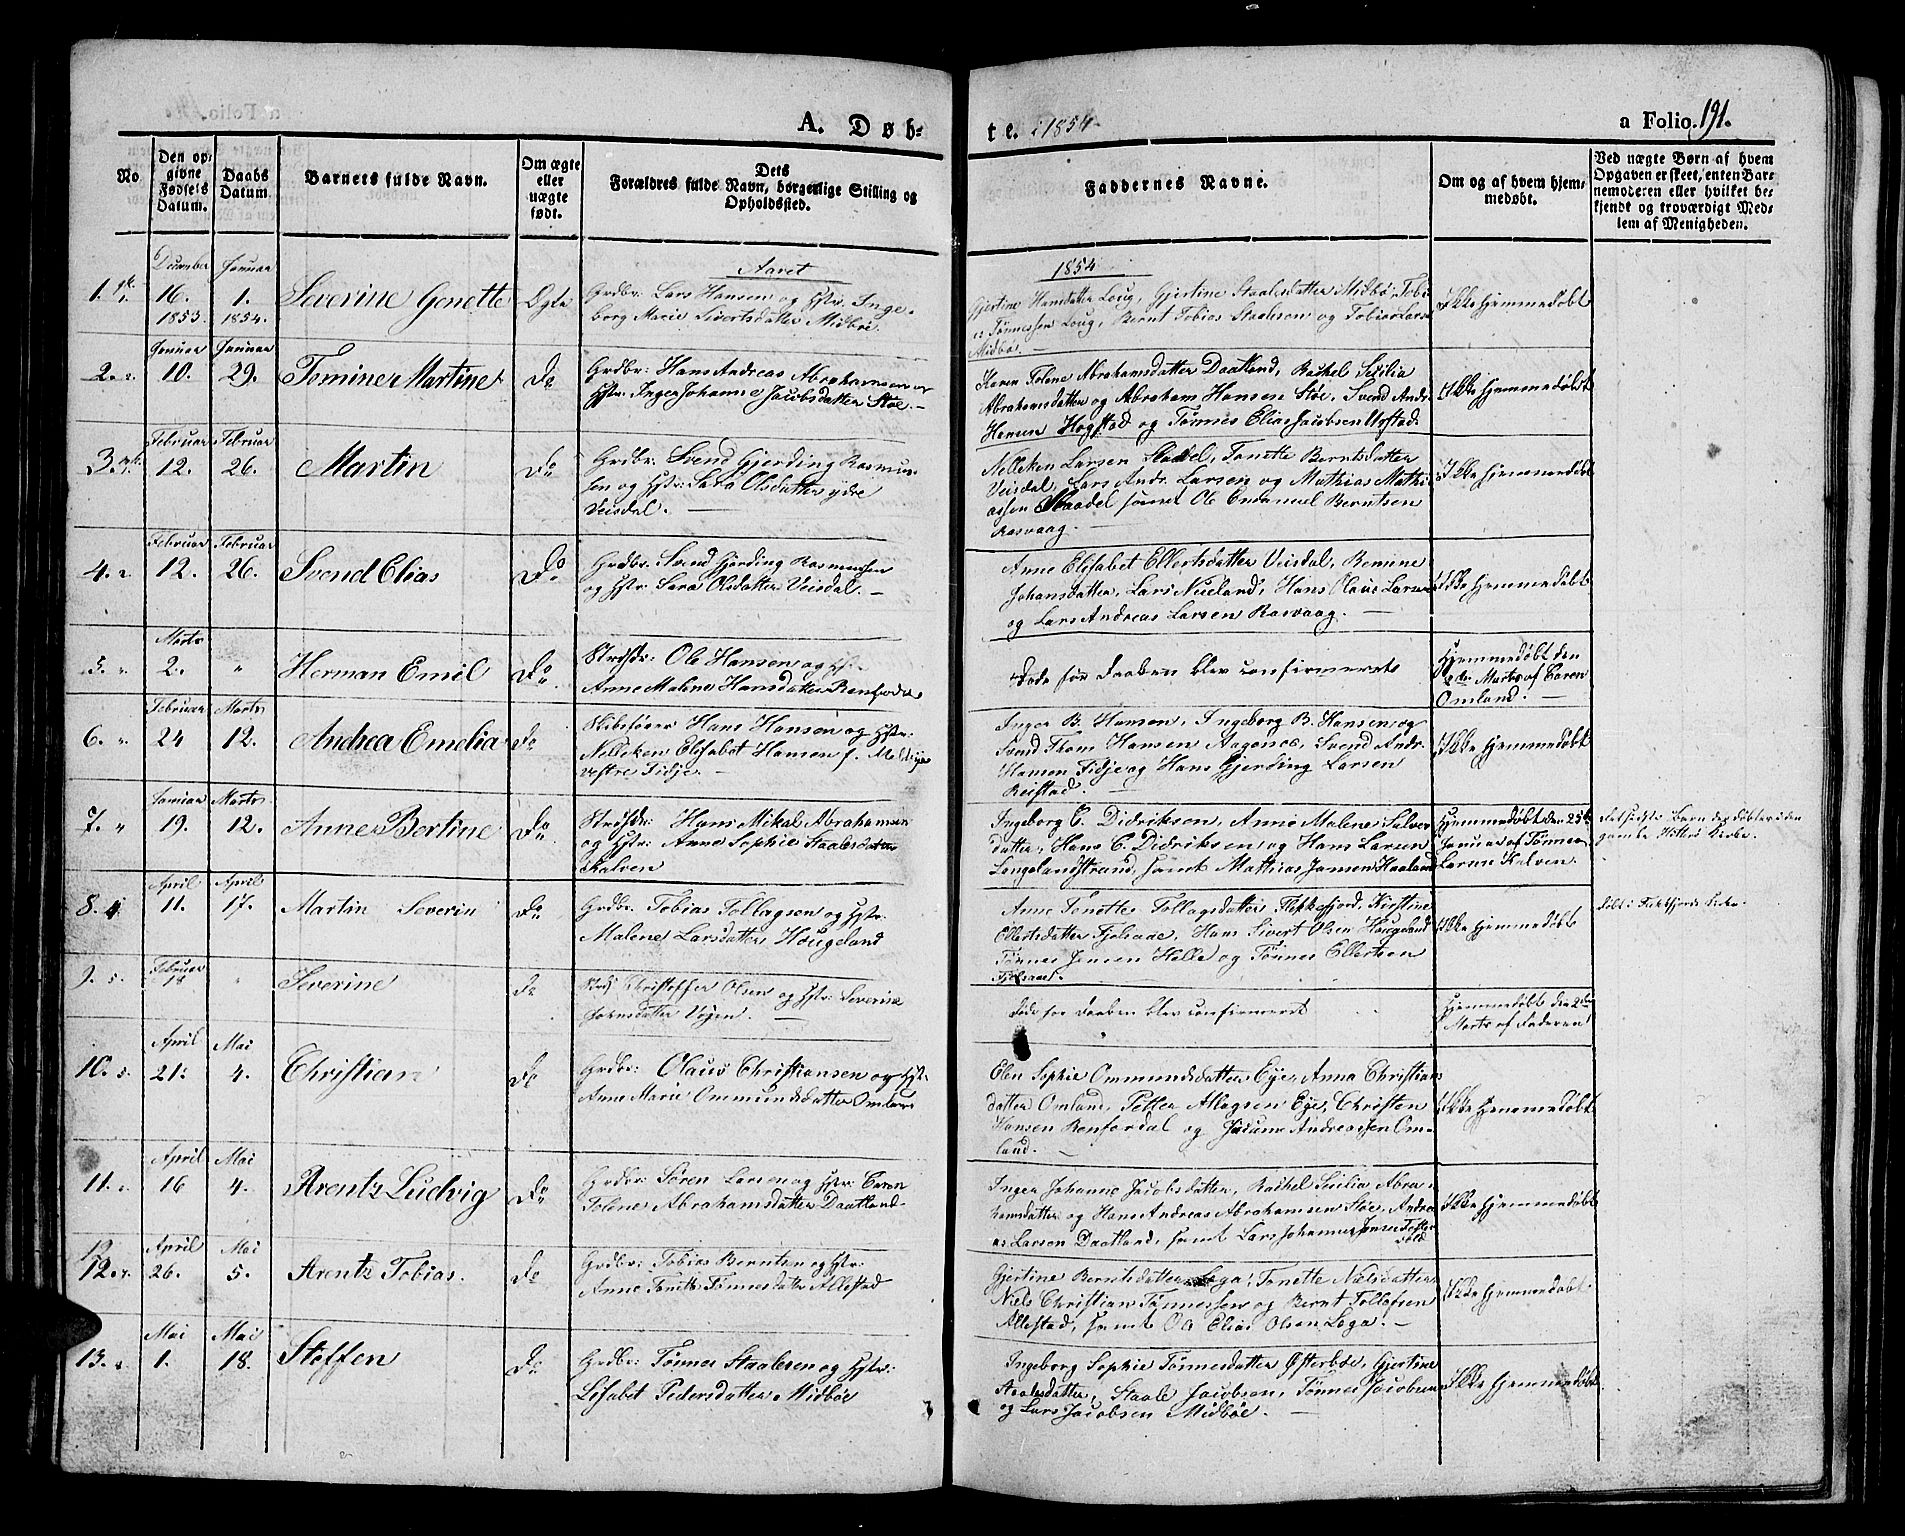 A. Døb-
te. i 1854.
a Folio. 191.
No.
Den op-
givne
Fødsels
Datum.
Daabs
Datum.
Barnets fulde Navn.
Om ægte
eller
uægte
født.
Dets
Forældres fulde Navn, borgerlige Stilling og
Opholdssted.
Faddernes Navne.
Om og af hvem hjem-
medøbt.
Ved uægte Børn af hvem
Opgaven er skeet, enten Bar-
nemoderen eller hvilket be-
kjendt og troværdigt Med-
lem af Menigheden.
Aaret
1854
1.
December
16.
1853.
Januar
1.
1854.
Severine Gonette
Ægte
Grdbr: Lars Hansen og Hstr. Inge-
borg Marie Sivertsdatter Midbøe.
Gjertine Hansdatter Loug, Gjertine Staalesdatter Midbø, Tobi-
as Tønnessen Loug, Bernt Tobias Staalesen og Tobias Larsen
Midbø.
Ikke Hjemmedøbt
2.
Januar
10.
Januar
29.
Tomine Martine
Do
Grdbr: Hans Andreas Abrahamsen og
Hstr: Inger Johanne Jacobsdatter Støe.
Karen Tolene Abrahamsdatter Daatland, Rachel Sicilia
Abrahamsdatter og Abraham Hansen Støe, Svend Andr.
Hansen Hogstad og Tønnes Elias Jacobsen
Ikke Hjemmedøbt
3.
Februar
12.
Februar
26.
Martin
Do
Grdbr: Svend Gjerding Rasmus-
sen og Hstr: Sara Olsdatter ydre
Veisdal.
Nelleken Larsen Tonette Berntsdatter
Veisdal, Lars Andr. Larsen og Mathias Mathi-
assen samt Ole Emanuel Berntsen
Rasvaag.
Ikke Hjemmedøbt
4.
Februar
12.
Februar
26.
Svend Elias
Do
Grdbr: Svend Gjerding Rasmussen
og Hstr: Sara Olsdatter Veisdal.
Anne Elisabet Ellertsdatter Veisdal, Bemine
Johansdatter, Lars Nueland, Hans Olaus Larsen
og Lars Andreas Larsen Rasvaag.
Ikke Hjemmedøbt
5.
Marts
2.
"
Herman Emil
Do
Strdsdr: Ole Hansen og Hstr.
Anne Malene Hansdatter Renfordal
Døde før Daaben blev confirmeret
Hjemmedøbt den
2den Marts af Caren
Omland.
6.
Februar
24
Marts
12.
Andrea Emelia
Do
Skibsfører Hans Hansen og Hstr:
Nelleken Elisabet Hansen f.
vestre Fidje.
Inger B. Hansen, Ingeborg B. Hansen og
Svend Thom Hansen Aagenes, Svend Andr.
Hansen Fidje og Hans Gjerding Larsen
Reistad.
Ikke Hjemmedøbt
7.
Januar
19.
Marts
12.
Anne Bertine
Do
Strdsdr: Hans Mikal Abrahamsen
og Hstr: Anne Sophie Staalesdatter
Kalven
Ingeborg C. Didriksen, Anne Malene Salves-
datter, Hans C. Didriksen og Hans Larsen
Longelandstrand, samt Mathias Jansen Haaland
Hjemmedøbt den 25de
Januar af Tønnes
Larsen Kalven.
det sidste Barn der døbtes i den
gamle Kirke.
8.
April
11.
April
17.
Martin Severin
Do
Grdbr: Tobias Tollagsen og Hstr.
Malene Larsdatter Hougeland
Anne Tonette Tollagsdatter Flekkefjord, Kirstine
Ellertsdatter Fjelsaae, Hans Sivert Olsen Hougeland
Tønnes Jensen Helle og Tønnes Ellertsen
Fjelsaae.
Ikke Hjemmedøbt
døbt i Fekkefjords Kirke.
9.
Februar
18
"
Severine
Do
Strds. Christoffer Olsen og Hstr: Severine
Jørnsdatter Vøjen.
Døde før Daaben blev confirmeret
Hjemmedøbt den 2den
Marts af Faderen
10.
April
21.
Mai
4.
Christian
Do
Grdbr: Olaus Christiansen og Hstr.
Anne Marie Ommundsdatter Omland
Elen Sophie Ommundsdatter Eye, Anna Christians-
datter Omland, Petter Atlagsen Eye, Christen
Hansen Renfordal og Andreassen Om-
land.
Ikke Hjemmedøbt
11.
April
16
Mai
4.
Arentz Ludvig
Do
Grdbr: Søren Larsen og Hstr: Caren
Tolene Abrahamsdatter Daatland
Inger Johanne Jacobsdatter, Rachel Sicilia Abra-
hamsdatter og Hans Andreas Abrahamsen Støe, Andre-
as Larsen Daatland, samt Lars Johannes
Ikke Hjemmedøbt
12
12.
April
26.
Mai
5.
Arentz Tobias.
Do
Grdbr: Tobias Berntsen og Hstr:
Anne Tonette Tønnesdatter Allestad
Gjertine Berntsdatter Lega, Tonette Nielsdatter
Niels Christian Tønnessen og Bernt Tollefsen
Allestad, samt Og Elias Olsen Lega.
Ikke Hjemmedøbt
13.
Mai
1.
Mai
18.
Steffen
Do
Grdbr: Tønnes Staalesen og Hstr:
Lisabet Pedersdatter Midbøe
Ingeborg Sophie Tønnesdatter Østerbøe, Gjertine
Staalesdatter, Staale Jacobsen, Tønnes Jacobsen
og Lars Jacobsen Midbøe.
Ikke Hjemmedøbt